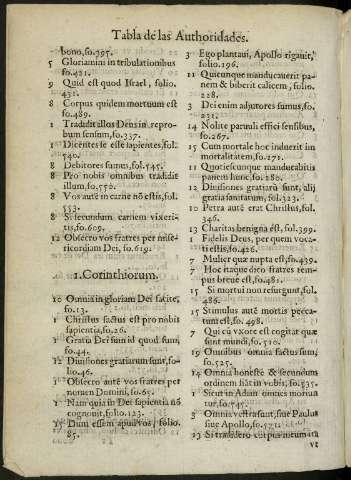 Tabla de las Authoridades.
bono, fo.395.
5 Gloriamini in tribulationibus
fo.421.
9 Quid est quod Israel, folio.
431.
8 Corpus quidem mortuum est
fo.489.
1 Tradidit illos Deus in reprobum
sensum, fo.337.
1 Dicentes se esse sapientes, fol.
540.
8 Debitores sumus, fol.545.
8 Pro nobis omnibus tradidit
illum, fo.550.
8 Vos autē in carne nō estis, fol.
553.
8 Si secundum carnem vixeritis,
fo.609.
12 Obsecro vos fratres per misericordiam
Dei, fo.619.
1. Corinthiorum.
10 Omnia in gloriam Dei facite,
fo.13.
1 Christus factus est pro nobis
sapientia, fo.26.
1 Gratia Dei sum id quod sum,
fo.44.
12 Diuisiones gratiarum sunt, folio.46.
1 Obsecro autē vos fratres per
nomen Domini, fo.65.
1 Nam quia in Dei sapientia nō
cognouit, folio.123.
Dum essem apud vos, folio.
85.
3 Ego plantaui, Apollo rigauit,
folio.196.
11 Quicunque manducauerit panem
& biberit calicem, folio.
228.
3 Dei enim adjutores sumus, fo.
14 Nolite paruuli effici sensibus,
fo.267.
15 Cum mortale hoc induerit immortalitatem,
fo.271.
11 Quotiescunque manducabitis
panem hunc, fo.280.
12 Diuisiones gratiarū sunt, alij
gratia sanitatum, fol.323.
10 Petra autē erat Christus, fol.
346.
13 Charitas benigna est, fol.399.
1 Fidelis Deus, per quem vocatis
estis, fo.426.
7 Mulier quæ nupta est, fo.439.
7 Hoc itaque dico fratres tempus
breue est, fo.481.
15 Si mortui non resurgunt, fol.
486.
15 Stimulus autē mortis peccatum
est, fo.498.
7 Qui cū vxore est cogitat quæ
sunt mundi, fo.510.
19 Omnibus omnia factus sum,
fo.525.
14 Omnia honeste & secundum
ordinem fiāt in vobis, fo.535.
1 Sicut in Adam omnes moriuntur,
fo.545.
3 Omnia vestra sunt, siue Paulus
siue Apollo, fo.571.
13 Si tradidero corpus meum ita
vt